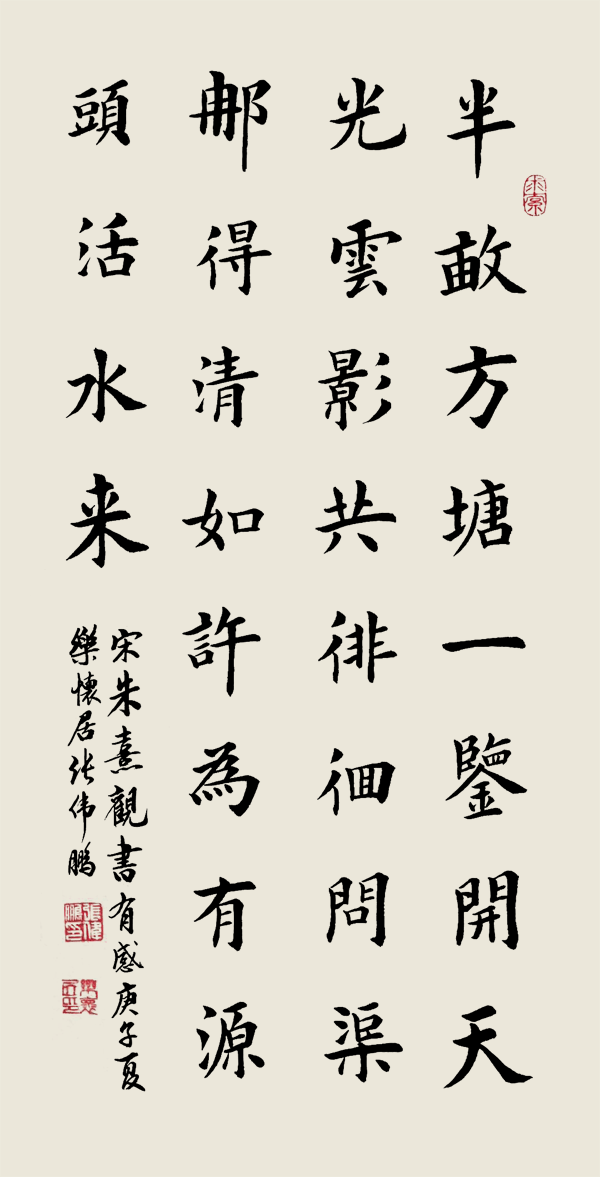 半畝方塘一鑒開天
光雲影共徘徊問渠
那得清如許為有源
頭活水来
宋朱熹觀書有感庚子夏
樂懷居张伟鹏
張偉鵬印